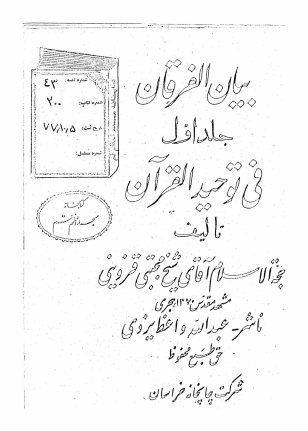 بیان الفرقان
جلد اول
فی توحید القرآن
تالیف
حجة الاسلام آقای شیخ مجتبی قزوینی
مشهد مقدس ۱۳۷۰ هجری
ناشر - عبدالله واعظ یزدی
حق طبع محفوظ
شرکت چاپخانه خراسان
شماره ۴۳
شماره ۲۰۰
تاریخ ثبت ۷۷/۸/۵
شماره مسلسل
کتابخانه
مسجد